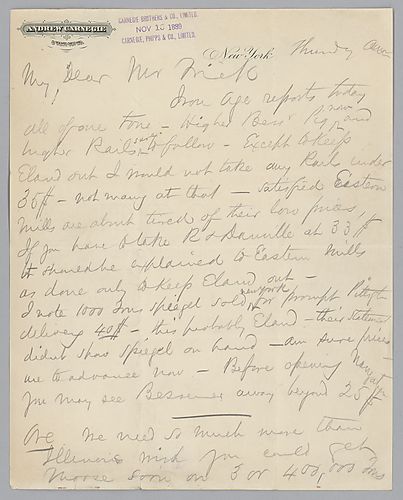 ANDREW CARNEGIE
CARNEGIE BROTHERS & CO., LIMITED.
NOV 15 1889
CARNEGIE, PHIPPS & CO., LIMITED.
New York Thursday
My Dear Mr Frick
Iron Age reports today
all of one tone – Higher Bess' Pig now and
higher Rails sure to follow – Except to keep
Eland out I would not take any Rails under
35$ – not many at that – satisfied Eastern
Mills are about tired of their low prices,
If you have to take R & Danville at 33$
it should be explained to Eastern Mills
as done only to keep Eland out –
I note 1000 tons spiegel sold New York for prompt Pittsgh
delivery 40$ – this probably Eland – their statement
didn't show spiegel on hand – am sure prices
are to advance now – Before opening Navgatn
you may see Bessemer away beyond 25$
Ore We need so much more than
Illinois wish you could get
Moore soon on 3 or 400,000 tons